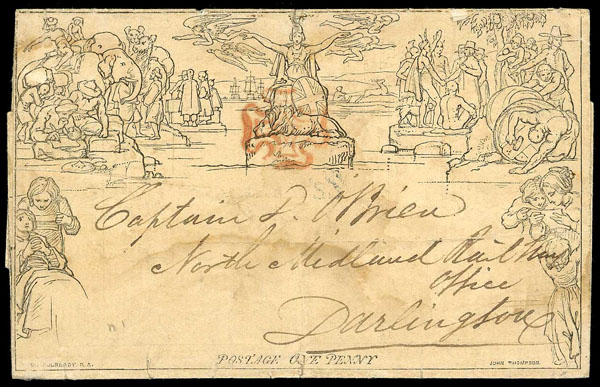 Captain L. O'Brien
North Midland Railway
Office
Darlington
POSTAGE ONE PENNY
W. MULREADY. R.A.
JOHN THOMPSON.